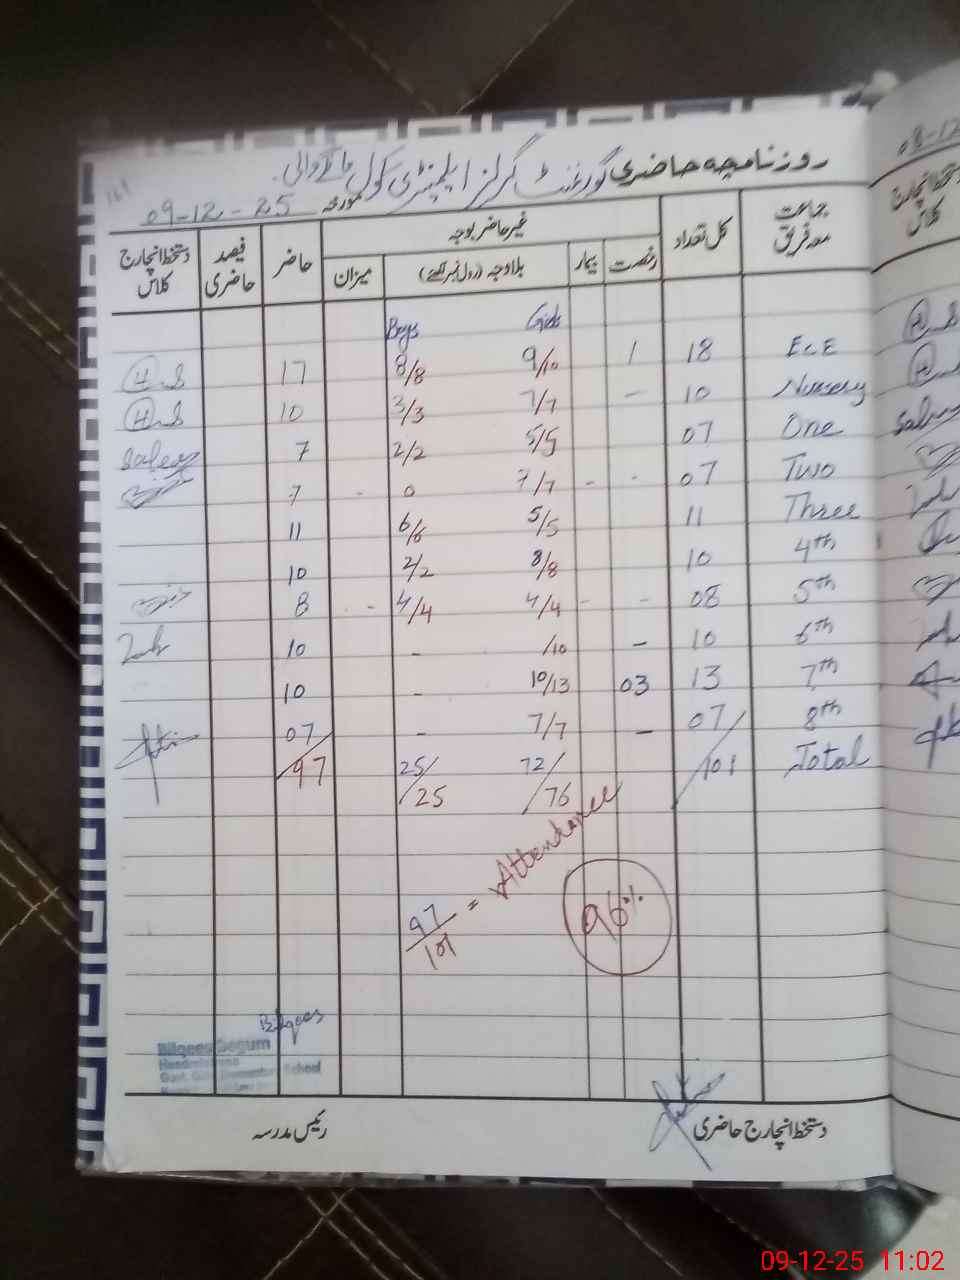 روزنامچہ حاضری گورنمنٹ گرلز ایلیمنٹری سکول
مورخہ 09-12-25
جماعت معہ فریق کل تعداد غیر حاضر بوجہ حاضر فیصد حاضری دستخط انچارج کلاس
رخصت بیمار بلاوجہ (رول نمبر لکھئے) میزان
Boys Girls
17 8/8 9/10 1 18 ECE
10 3/3 7/7 - 10 Nursery
7 2/2 5/5 07 One
7 - 0 7/7 - - 07 Two
11 6/6 5/5 11 Three
10 2/2 8/8 10 4th
8 - 4/4 4/4 - - 08 5th
10 - /10 - 10 6th
10 - 10/13 03 13 7th
07 - 7/7 - 07 8th
97 25/25 72/76 101 Total
97/101 = Attendance 96%
Bilqees
Bilqees Begum
دستخط انچارج حاضری رئیس مدرسہ
08-12
دستخط انچارج کلاس
09-12-25 11:02